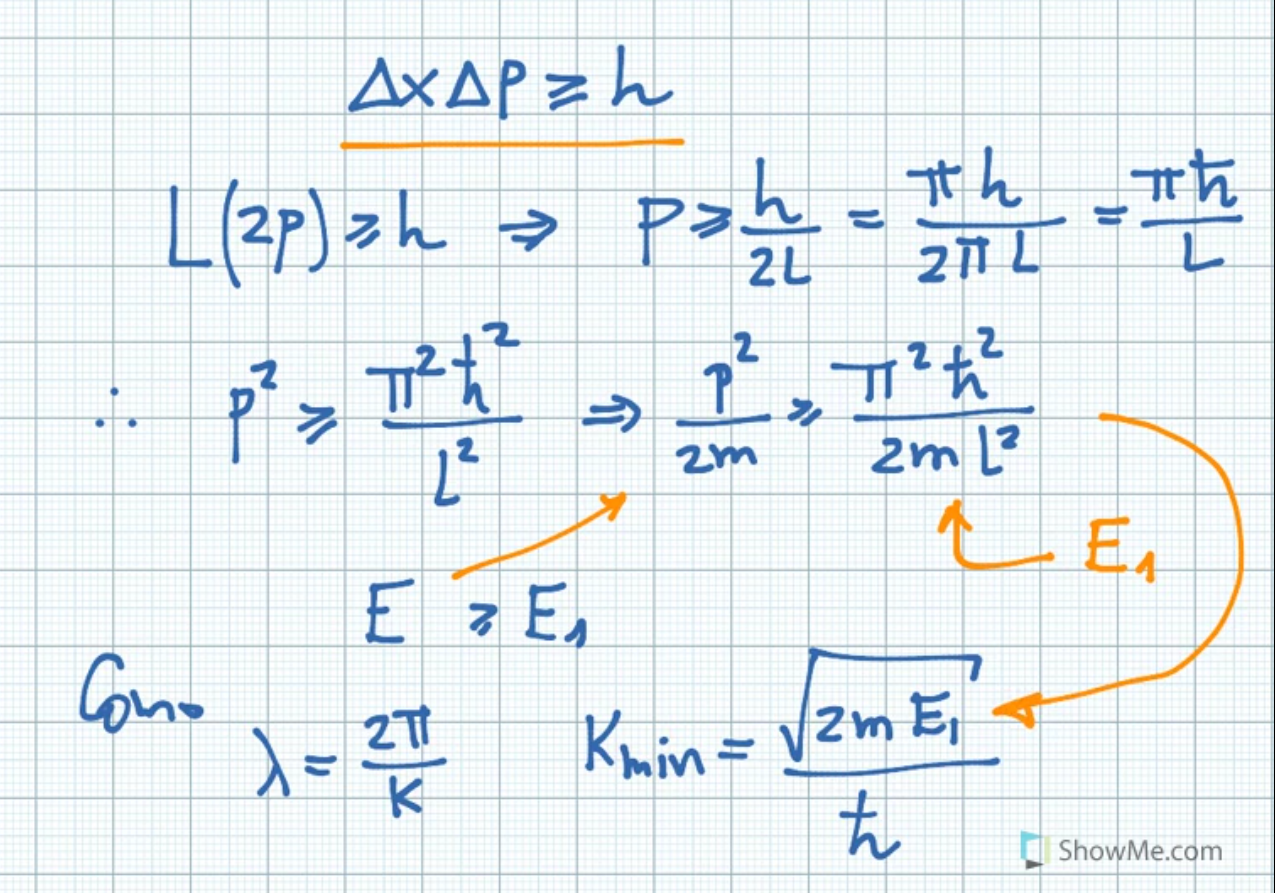 Δx Δp ≥ h
L(2p) ≥ h ⇒ p ≥ h/2L = πh/2πL = πħ/L
∴ p² ≥ π²ħ²/L² ⇒ p²/2m ≥ π²ħ²/2mL²
E₁
E ≥ E₁
Como
λ = 2π/K Kmin = √(2mE₁)/ħ
ShowMe.com